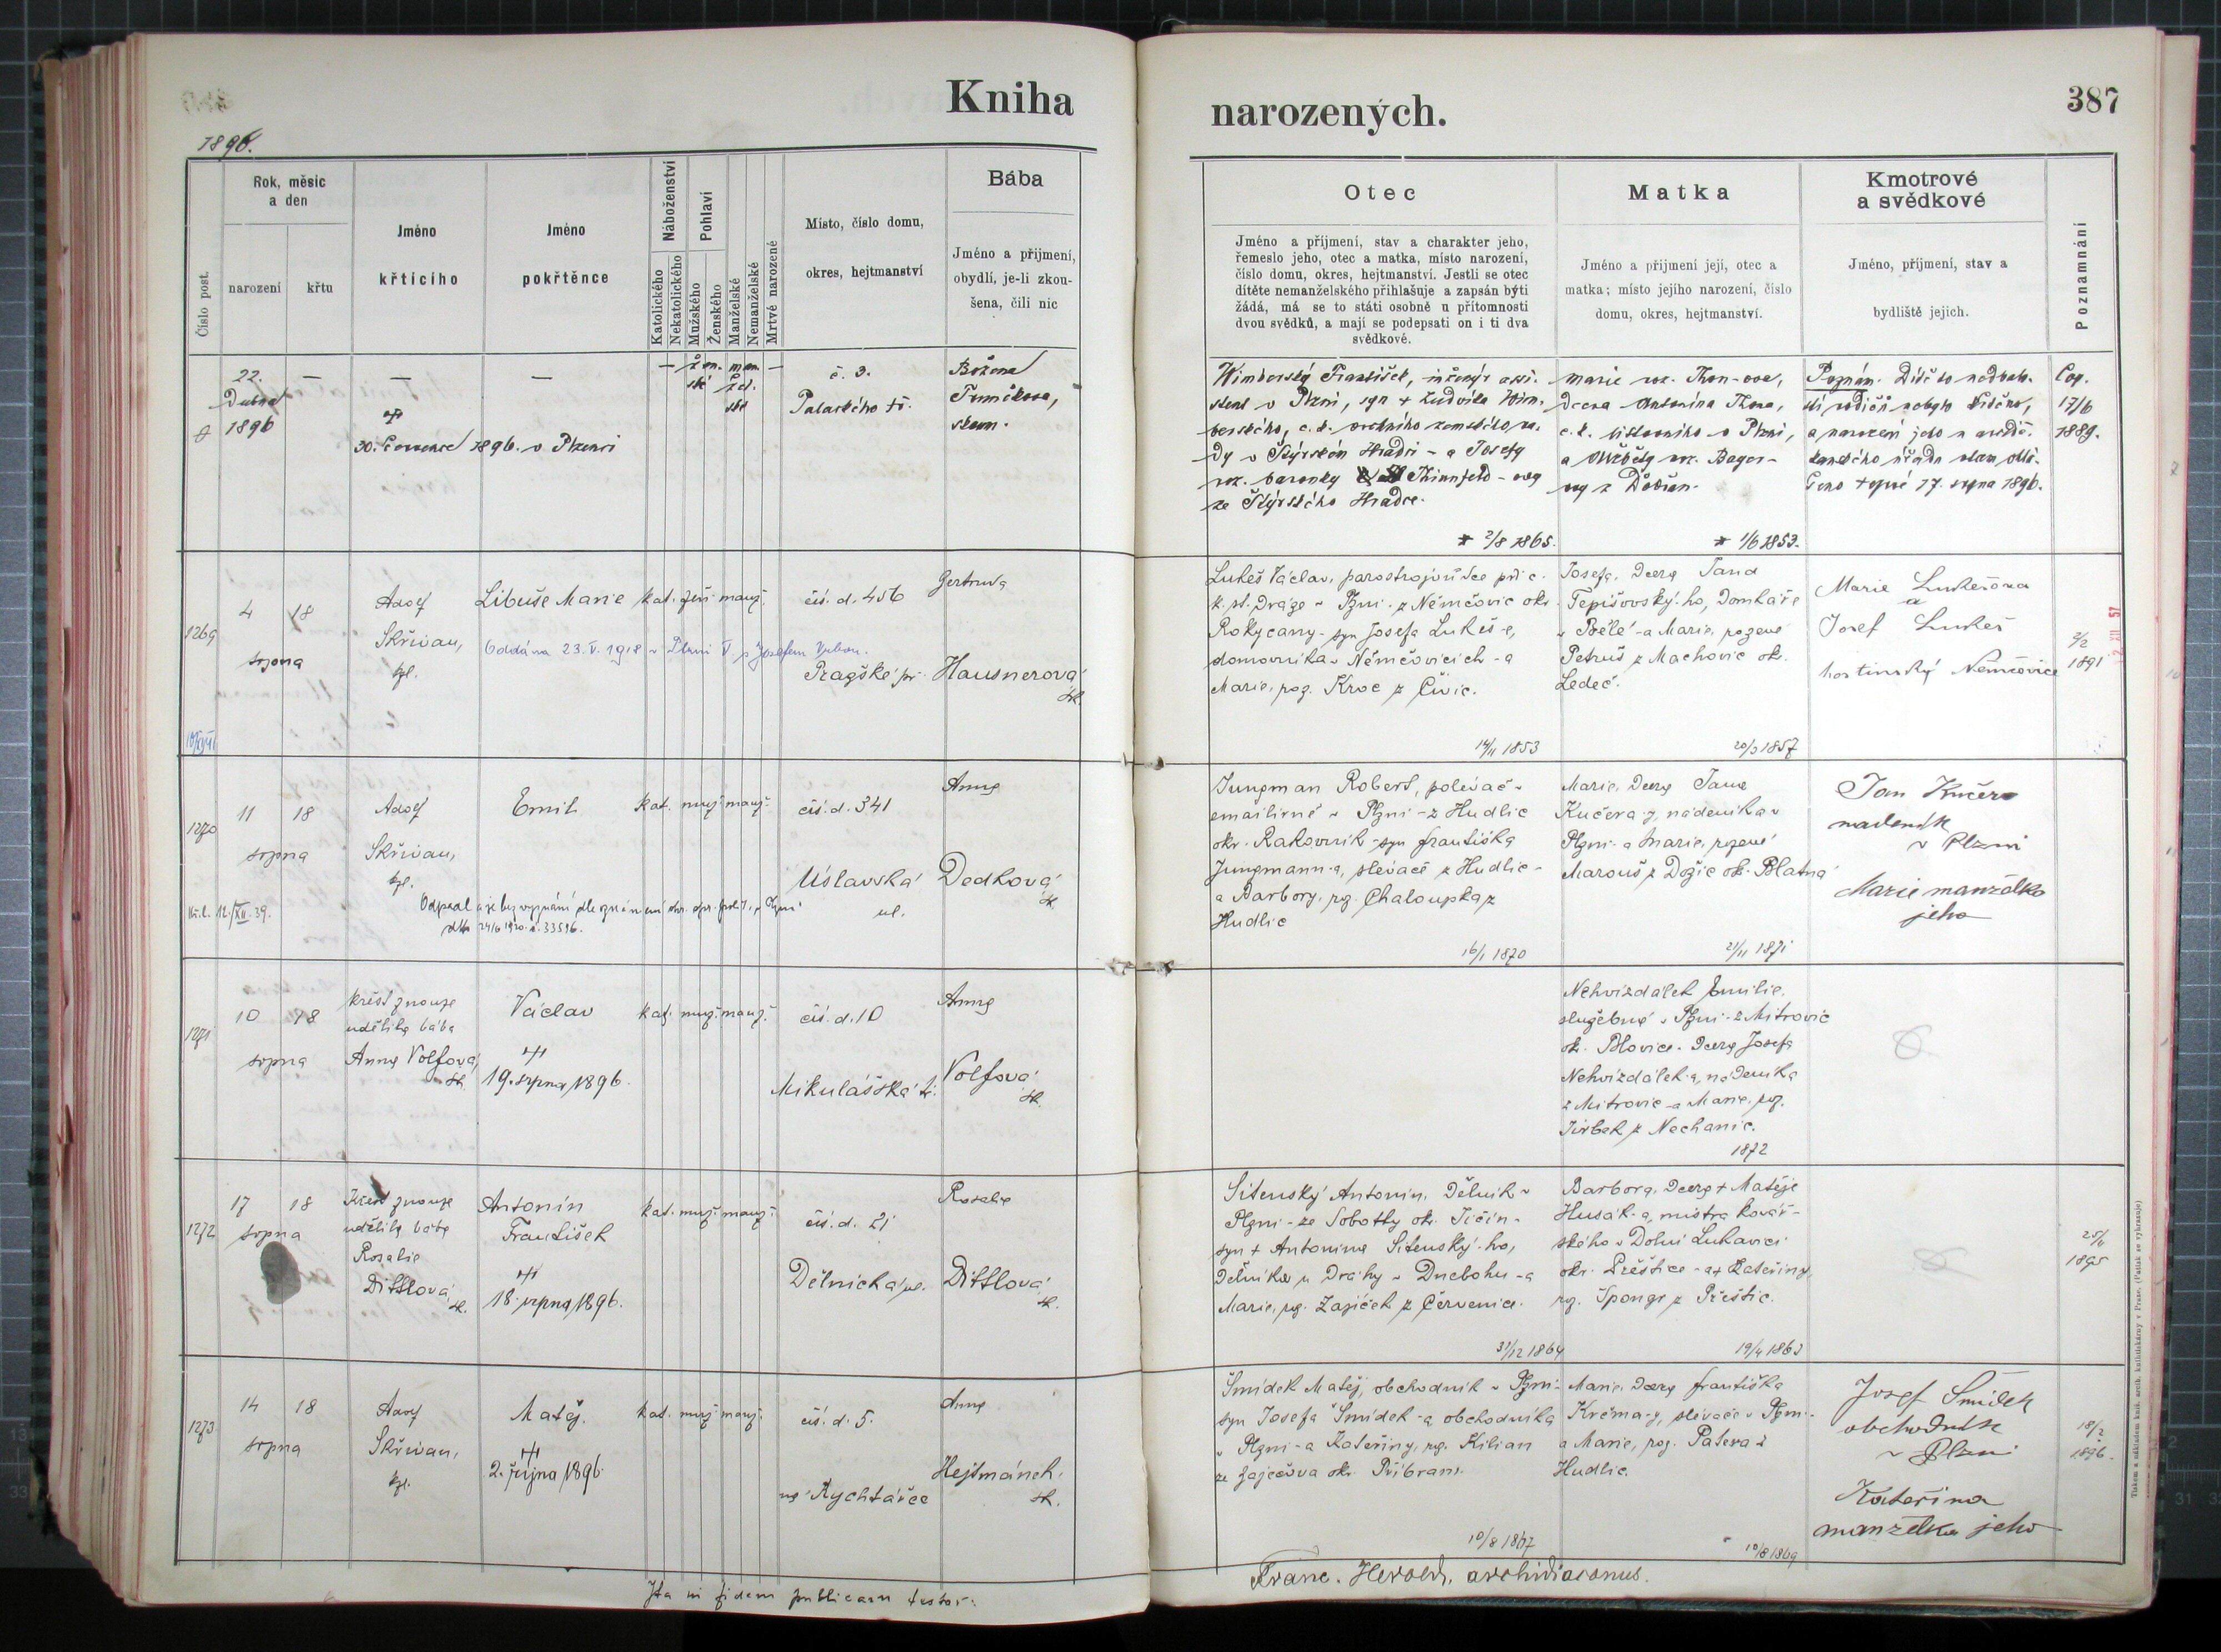 Kniha
narozených.
387
1896.
Číslo post.
Rok, měsíc
a den
narození
křtu
Jméno
křtícího
Jméno
pokřtěnce
Náboženství
Katolického
Nekatolického
Pohlaví
Mužského
Ženského
Manželské
Nemanželské
Mrtvé narozené
Místo, číslo domu,
okres, hejtmanství
Bába
Jméno a příjmení,
obydlí, je-li zkou-
šena, čili nic
Otec
Jméno a příjmení, stav a charakter jeho,
řemeslo jeho, otec a matka, místo narození,
číslo domu, okres, hejtmanství. Jestli se otec
dítěte nemanželského přihlašuje a zapsán býti
žádá, má se to státi osobně u přítomnosti
dvou svědků, a mají se podepsati on i ti dva
svědkové.
Matka
Jméno a příjmení její, otec a
matka; místo jejího narození, číslo
domu, okres, hejtmanství.
Kmotrové
a svědkové
Jméno, příjmení, stav a
bydliště jejich.
Poznamnání
22.
Dubna
1896
—
—
—
30. Července 1896. v Plzni
— žen. man. —
ské žel.
ské
č. 3.
Palackého tř.
Božena
zkouš.
Wimberský František, inženýr assi-
stent v Plzni, syn + Ludvíka Wim-
berského, c. k.
dy v Štýrském Hradci - a Josefy
roz. baronky Thinnfeld - ovy
ze Štýrského Hradce.
* 2/8 1865.
Marie roz. Thon-ova,
dcera Antonína Thona,
c. k. v Plzni,
a Alžběty roz. Bayer-
ovy z Dobřan.
* 1/6 1853.
Poznám. Dítě to nedbalo-
stí rodičů nebylo křtěno,
a narození jeho u
úřadu
teprvé 17. srpna 1896.
Cop.
17/6
1889.
1269
4 18
srpna
Adolf
Skřivan,
kpl.
Libuše Marie
kat. žen. manž.
Oddána 23. V. 1918 v Plzni s Josefem
čís. d. 456
Pražské př.
Gertruda
Hausnerová
zk.
Lukeš Václav, parostrojvůdce při c.
k. st. dráze v Plzni - z Němčovic okr.
Rokycany - syn Josefa Lukeš-e,
domovníka v Němčovicích - a
Marie, roz. Kroc z Čivic.
14/11 1853
Josefa, dcera Jana
Tepišovský-ho, domkáře
v Bělé - a Marie, rozené
Petruš z Machovic ok.
Ledeč.
20/3 1857
Marie Lukešova
a
Josef Lukeš
hostinský Němčovice
2/2
1891
1270
11 18
srpna
Adolf
Skřivan,
kpl.
Emil
kat. muž. manž.
čís. d. 341
Úslavská
ul.
Anna
Dedková
zk.
12./XII. 39.
dto 24/6 1920 č. 33596.
Jungman Robert, polévač v
emailirně v Plzni - z Hudlic
okr. Rakovník - syn Františka
Jungmann-a, slévače z Hudlic -
a Barbory, rz. Chaloupka z
Hudlic
16/1 1870
Marie, dcera Jana
Kučera-y, nádeníka v
Plzni - a Marie, rozené
Marouš z Dožic ok. Blatná
21/11 1871
Jan Kučera
nádeník
v Plzni
Marie manželka
jeho
1271
10 18
srpna
křest z nouze
udělila bába
Anna Volfová,
zk.
Václav
19. srpna 1896.
kat. muž. manž.
čís. d. 10
Mikulášská tř.
Anna
Volfová
zk.
Nehvízdálek Emilie,
služebná v Plzni - z Mitrovic
ok. Blovice - dcera Josefa
Nehvízdálek-a, nádeníka
z Mitrovic - a Marie, roz.
Jirbek z Nechanic.
1872
1272
17 18
srpna
Křest z nouze
udělila bába
Rosalie
Dittlová,
zk.
Antonín
František
18. srpna 1896.
kat. muž. manž.
čís. d. 21
Dělnická ul.
Rosalie
Dittlová,
zk.
Sitenský Antonín, dělník v
Plzni - ze Sobotky ok. Jičín -
syn + Antonína Sitenský-ho,
dělníka u dráhy v Dnebohu - a
Marie, rz. Zajíček z Červenice.
31/12 1864
Barbora, dcera + Matěje
Husák-a, mistra kovář-
ského v Dolní Lukavici
okr. Přeštice - a + Kateřiny,
rz. Šponge z Přeštic.
19/4 1863
25/6
1895
1273
14 18
srpna
Adolf
Skřivan,
kpl.
Matěj.
2. října 1896.
kat. muž. manž.
čís. d. 5.
na Rychtářce
Anna
Hejtmánek.
zk.
Šmídek Matěj, obchodník v Plzni -
syn Josefa Šmídek-a, obchodníka
v Plzni - a Kateřiny, rz. Kilian
ze Zaječova okr. Příbram.
10/8 1867
Marie, dcera Františka
Krčma-y, slévače v Plzni -
a Marie, roz. Patera z
Hudlic.
10/8 1869
Josef Šmídek
obchodník
v Plzni
Kateřina
manželka jeho
18/2
1896.
Ita in fidem publicam testor:
Franc. Herold, archidiaconus.